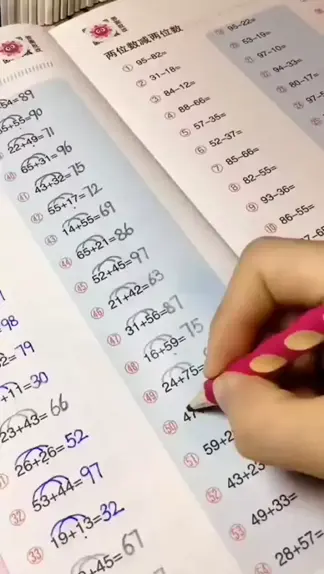 98
2=79
+11=30
23+43=66
26+26=52
㉜ 53+44=97
㉝ 19+13=32
+45=67
54=89
5+55=90
22+49=71
㊵ 65+31=96
㊶ 43+32=75
㊷ 55+17=72
㊸ 14+55=69
㊹ 65+21=86
㊺ 52+45=97
㊻ 21+42=63
㊼ 31+56=87
㊽ 16+59=75
㊾ 24+75=
㊿ 47
51 59+2
52 43+23
53 49+33=
28+57=
两位数减两位数
① 95-82=
② 31-18=
③ 84-12=
④ 88-66=
⑤ 57-35=
⑥ 52-37=
⑦ 85-66=
⑧ 82-55=
⑨ 93-36=
⑩ 86-55=
95-22=
53-19=
97-10=
94-33=
80-17=
97-5